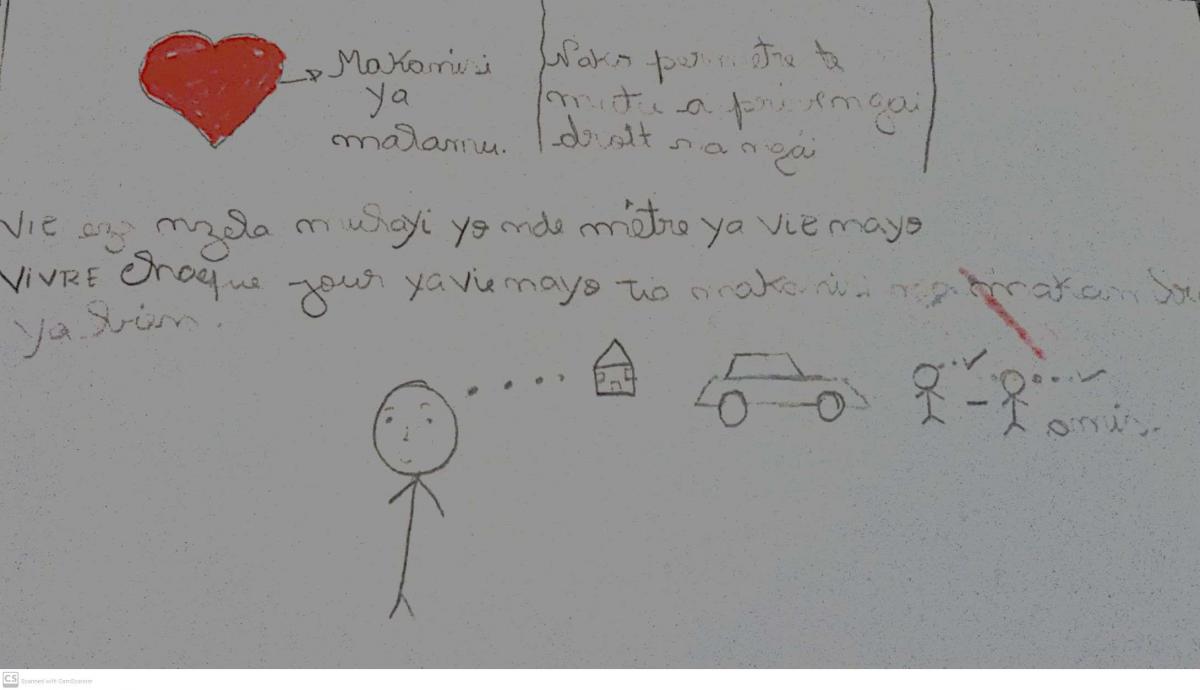 Makanisi
ya
malamu.
Nako permetre te
mutu a prive ngai
droit na ngai
VIE eza nzela mutayi yo nde mètre ya vie mayo
VIVRE chaque jour ya vie mayo tia makanisi na makambu
ya bien.
amis.
CS Scanned with CamScanner